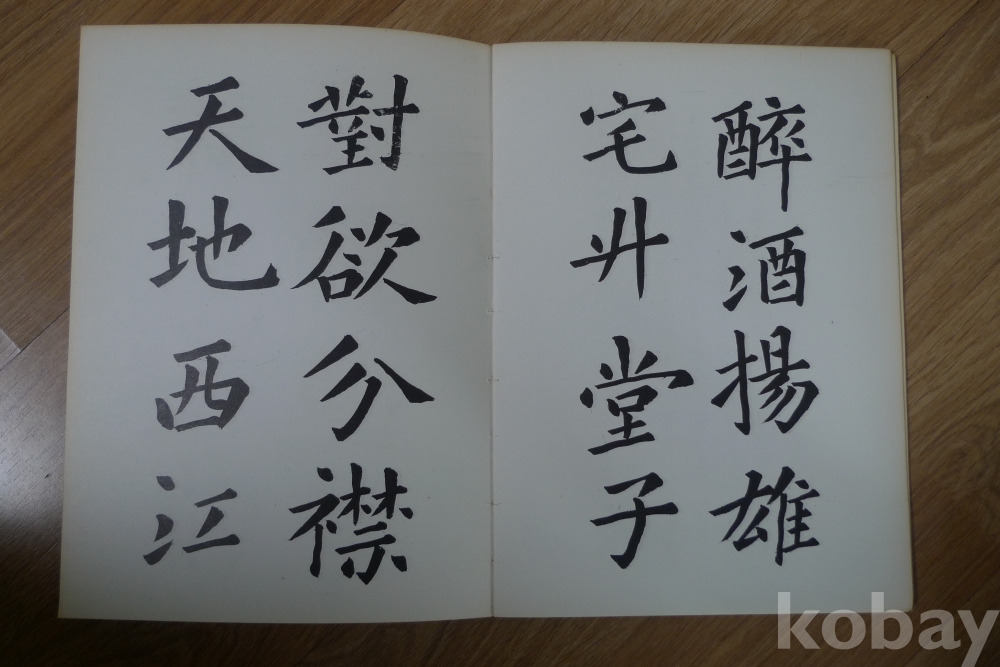 醉酒揚雄
宅升堂子
對欲分襟
天地西江
kobay